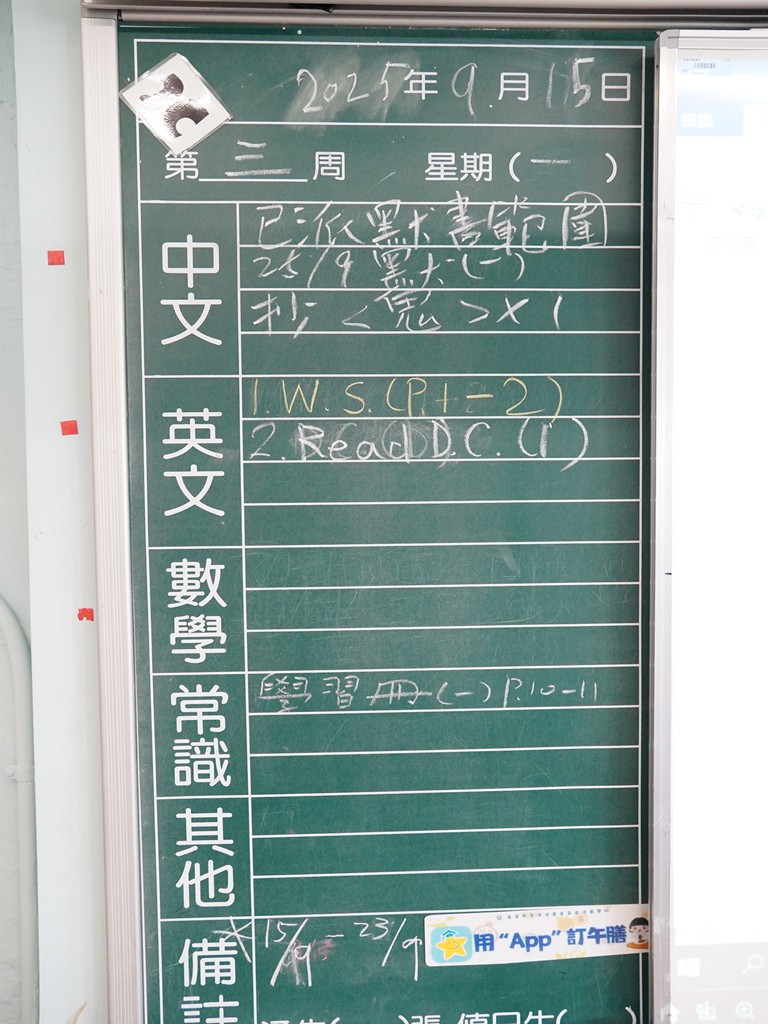 2025年9月15日
第三周 星期(一)
中文
已派默書範圍
25/9 默(一)
抄<冤>×1
英文
1. W. S. (P.1-2)
2. Read D.C. (1)
數學
常識
學習冊(一) P.10-11
其他
備註
*15/9 - 23/9
用“App”訂午膳